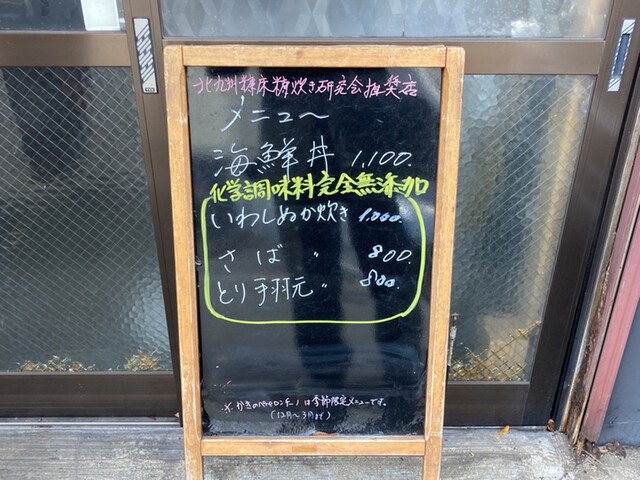 北九州糠床糠炊き研究会推奨店
メニュ〜
海鮮丼 1,100.
化学調味料完全無添加
いわしぬか炊き 1,000.
さば 〃 800.
とり手羽元 〃 800.
※かきの は季節限定メニューです。
(12月〜3月まで)